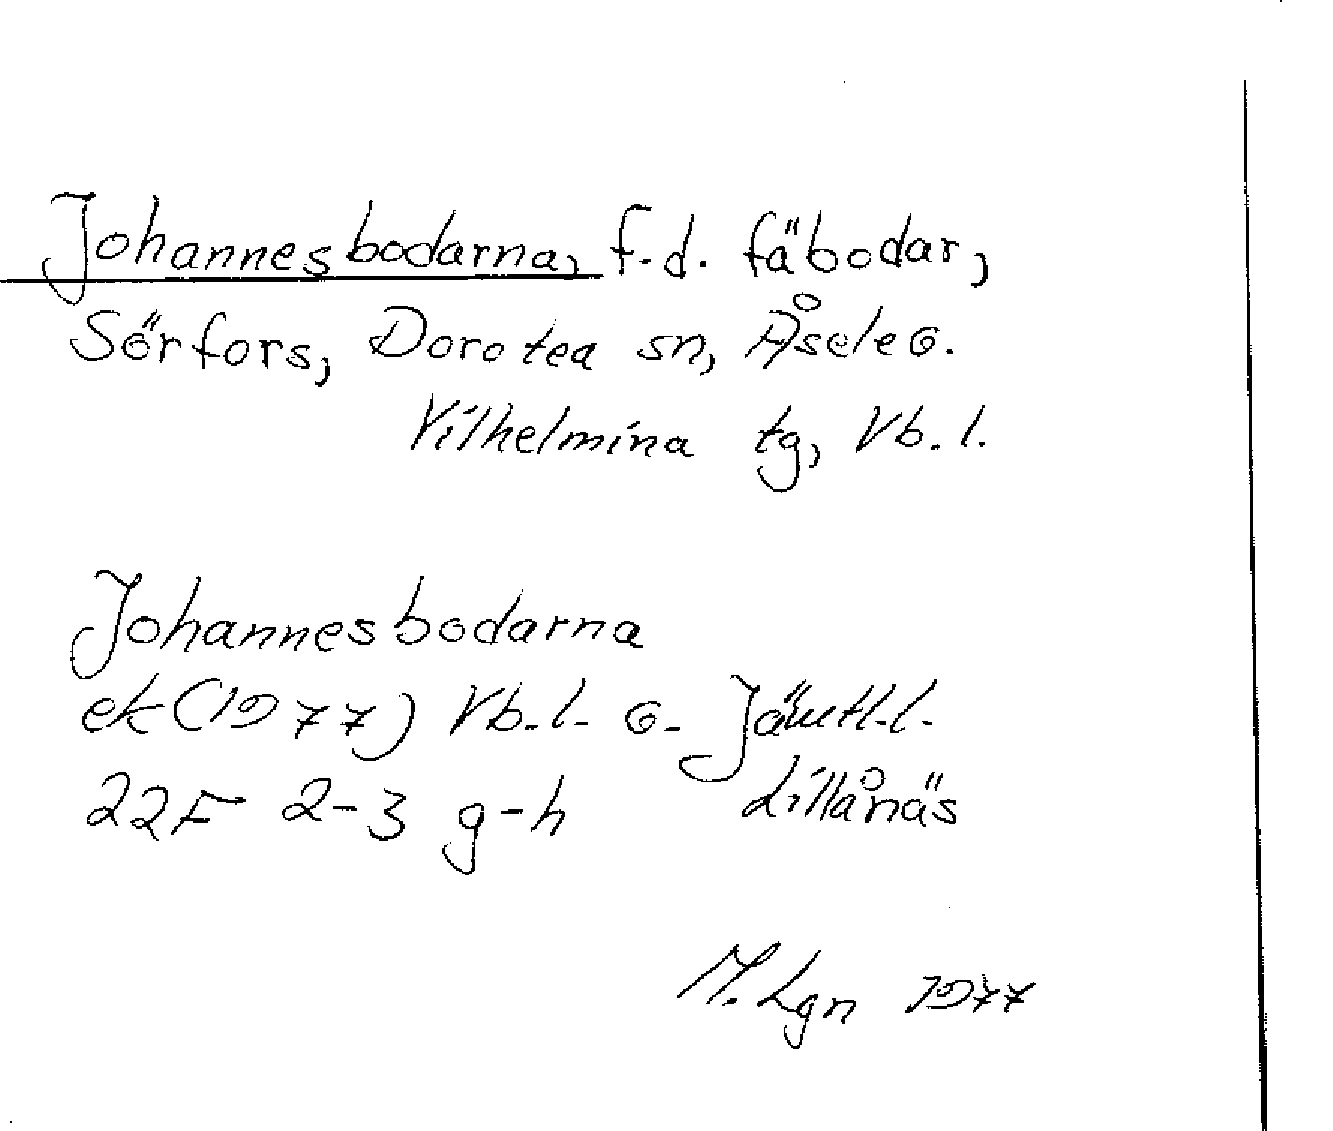 Johannesbodarna, f.d. fäbodar,
Sörfors, Dorotea sn, Åsele o.
Vilhelmina tg, Vb.l.
Johannesbodarna
ek (1977) Vb.l. o. Jämtl.l.
22F 2-3 g-h Lillånäs
M. Lgn 1977